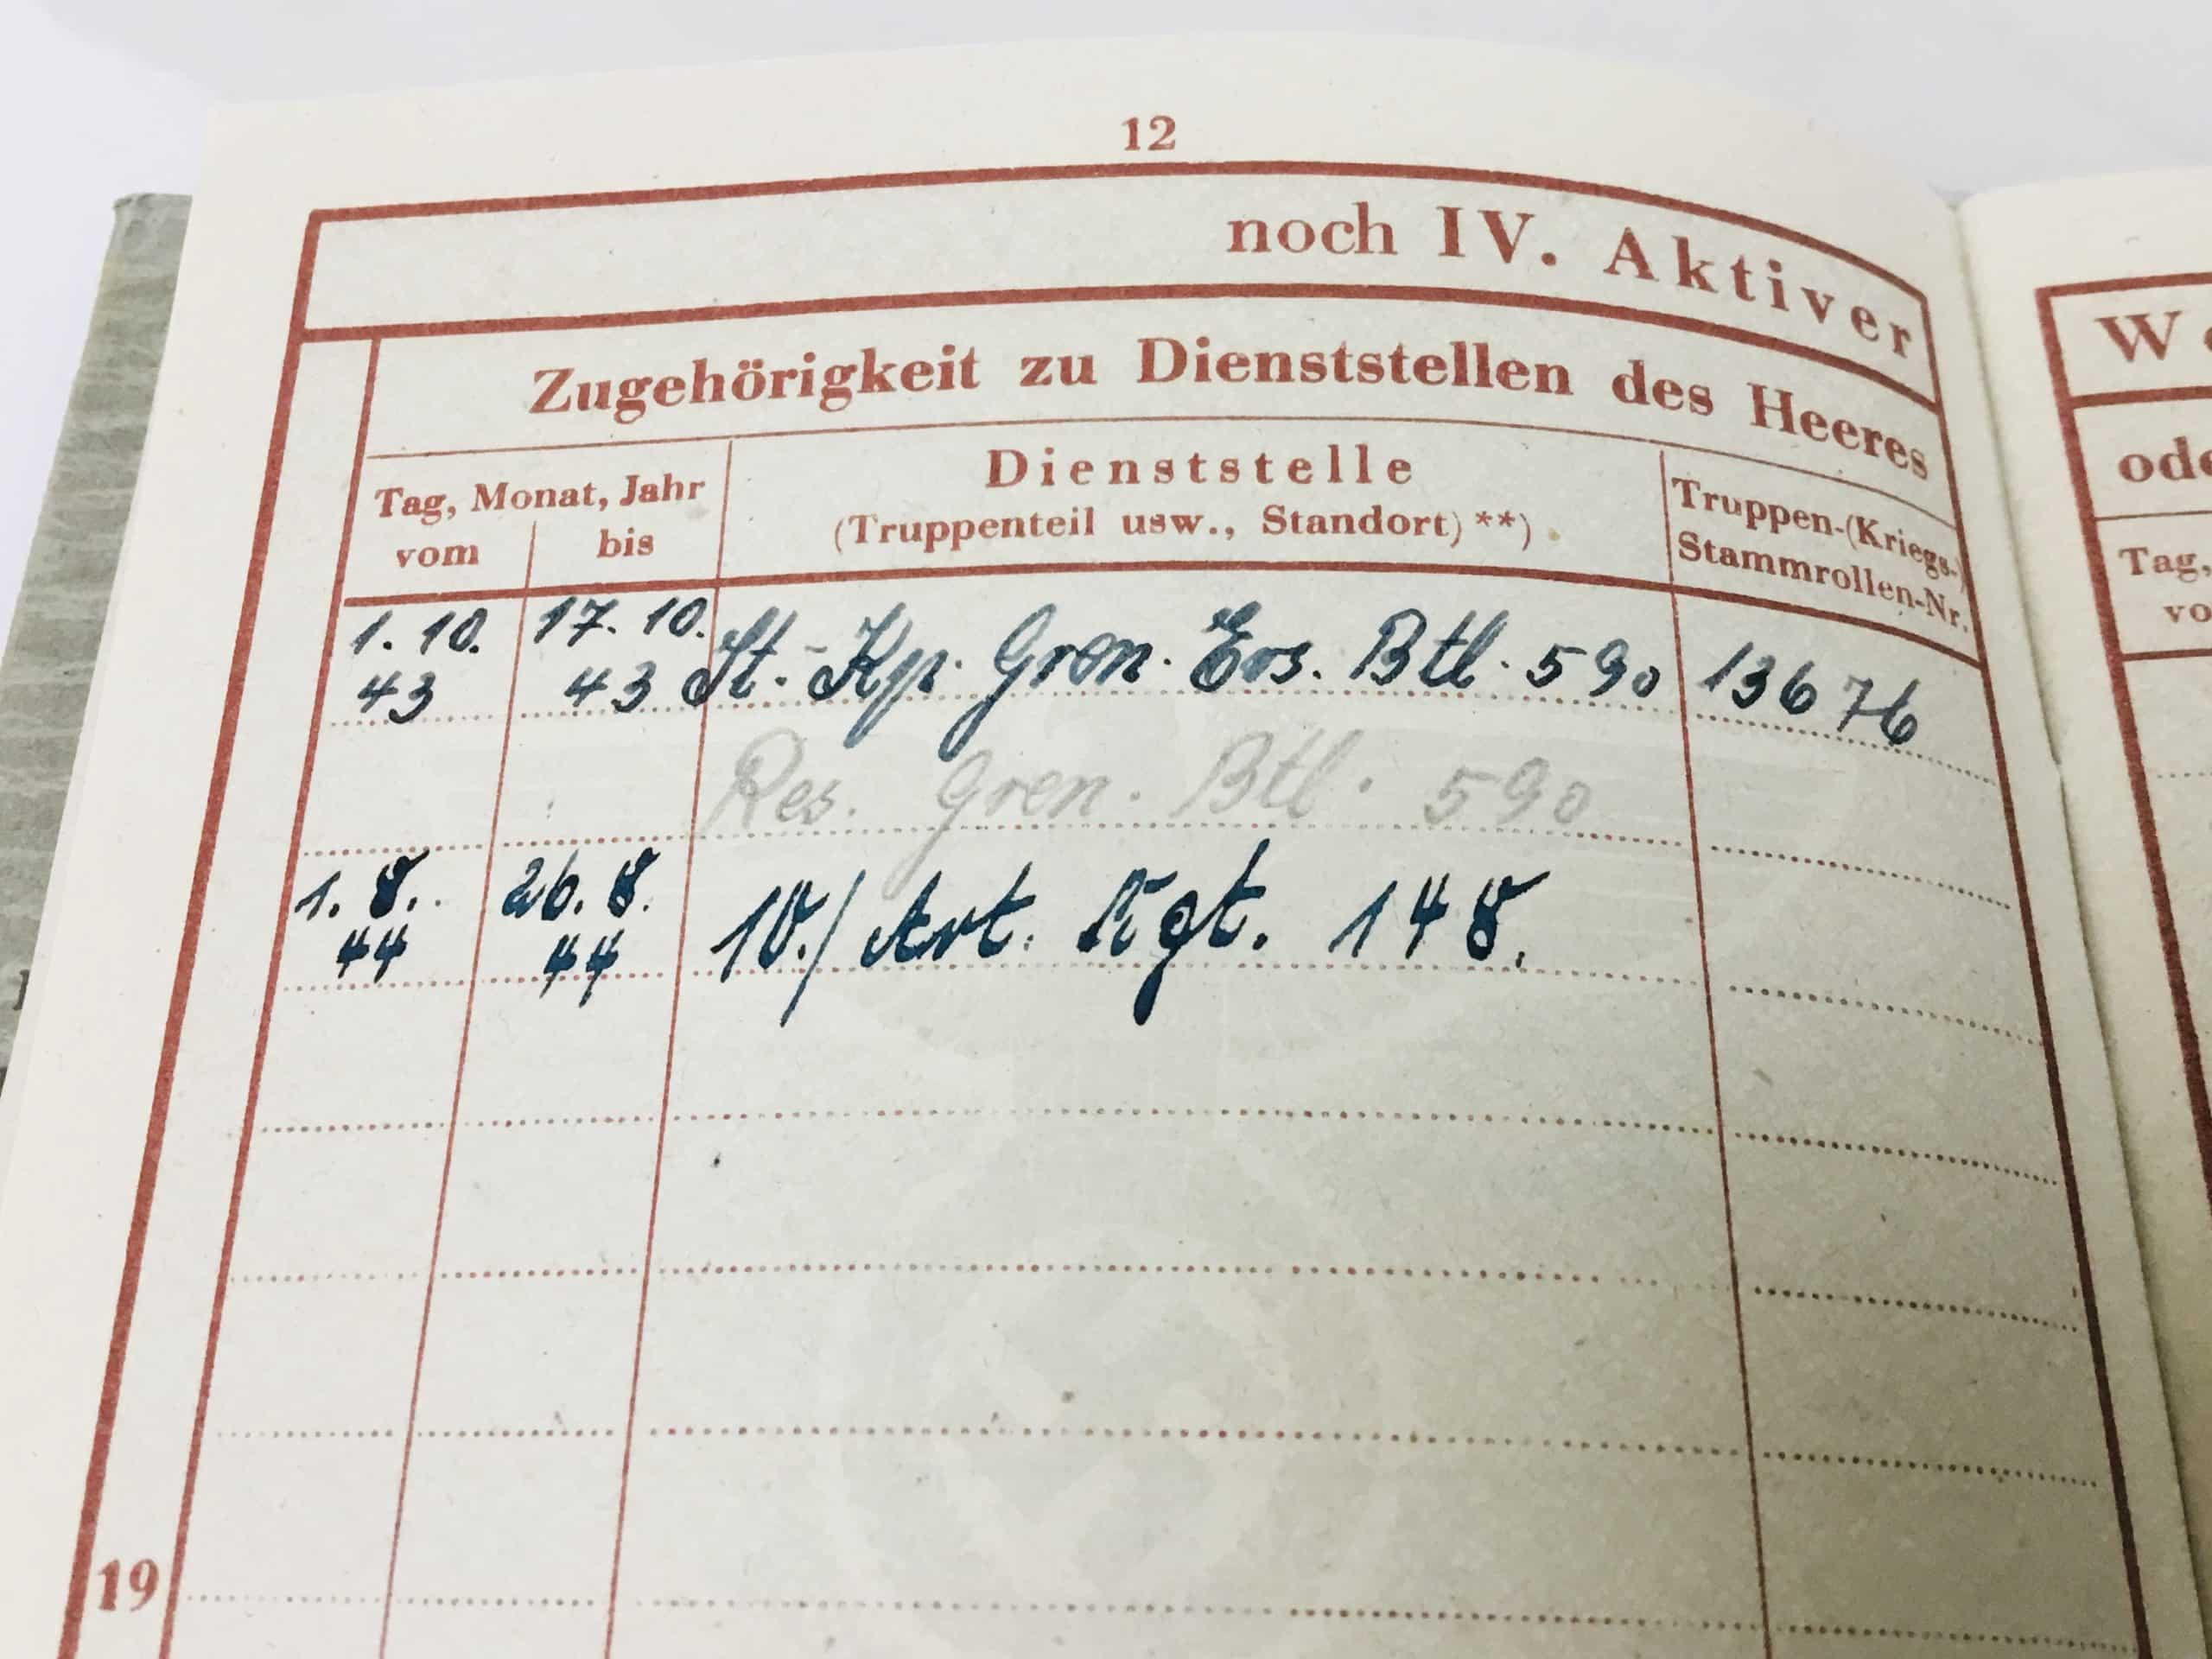 12
noch IV. Aktiver
Zugehörigkeit zu Dienststellen des Heeres
Tag, Monat, Jahr
vom bis
Dienststelle
(Truppenteil usw., Standort) **)
Truppen-(Kriegs-)
Stammrollen-Nr.
1. 10. 17. 10.
43 43 St.-Kp. Gren. Ers. Btl. 590 13676
Res. Gren. Btl. 590
1. 8. 26. 8.
44 44 10./Art. Rgt. 148.
19
W
Tag,